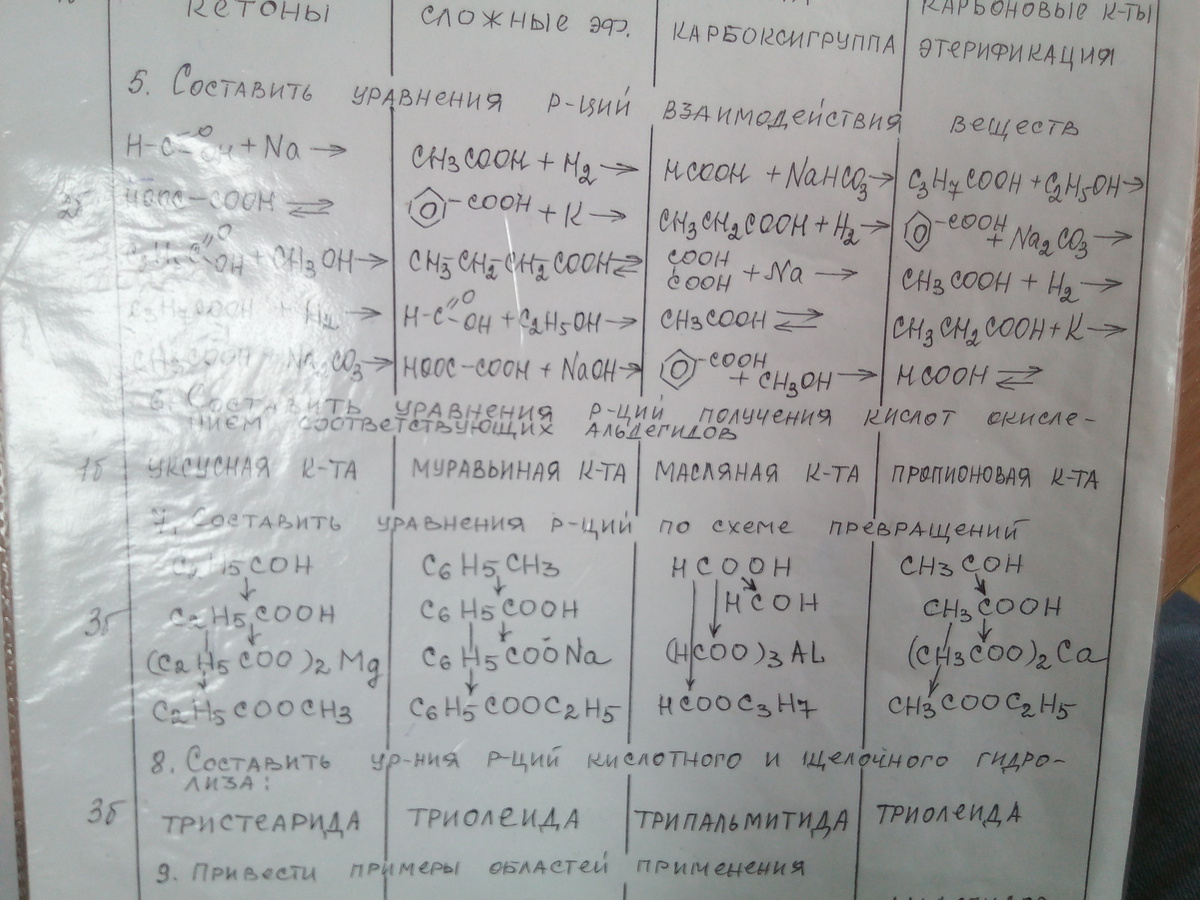 КЕТОНЫ | СЛОЖНЫЕ ЭФ. | КАРБОКСИГРУППА | КАРБОНОВЫЕ К-ТЫ
ЭТЕРИФИКАЦИЯ
5. СОСТАВИТЬ УРАВНЕНИЯ Р-ЦИЙ ВЗАИМОДЕЙСТВИЯ ВЕЩЕСТВ
H-C=O OH + Na → | CH3COOH + H2 → | HCOOH + NaHCO3 → | C3H7COOH + C2H5OH →
2б HOOC-COOH ⇌ | -COOH + K → | CH3CH2COOH + H2 → | -COOH + Na2CO3 →
C=O OH + CH3OH → | CH3CH2CH2COOH ⇌ | COOH COOH + Na → | CH3COOH + H2 →
C3H7COOH + H2 → | H-C=O OH + C2H5OH → | CH3COOH ⇌ | CH3CH2COOH + K →
CH3COOH + Na2CO3 → | HOOC-COOH + NaOH → | -COOH + CH3OH → | HCOOH ⇌
6. СОСТАВИТЬ УРАВНЕНИЯ Р-ЦИЙ ПОЛУЧЕНИЯ КИСЛОТ ОКИСЛЕ-
НИЕМ СООТВЕТСТВУЮЩИХ АЛЬДЕГИДОВ
1б УКСУСНАЯ К-ТА | МУРАВЬИНАЯ К-ТА | МАСЛЯНАЯ К-ТА | ПРОПИОНОВАЯ К-ТА
7. СОСТАВИТЬ УРАВНЕНИЯ Р-ЦИЙ ПО СХЕМЕ ПРЕВРАЩЕНИЙ
C2H5COH | C6H5CH3 | HCOOH | CH3COH
3б C2H5COOH | C6H5COOH | HCOH | CH3COOH
(C2H5COO)2Mg | C6H5COONa | (HCOO)3AL | (CH3COO)2Ca
C2H5COOCH3 | C6H5COOC2H5 | HCOOC3H7 | CH3COOC2H5
8. СОСТАВИТЬ УР-НИЯ Р-ЦИЙ КИСЛОТНОГО И ЩЕЛОЧНОГО ГИДРО-
ЛИЗА:
3б ТРИСТЕАРИДА | ТРИОЛЕИДА | ТРИПАЛЬМИТИДА | ТРИОЛЕИДА
9. ПРИВЕСТИ ПРИМЕРЫ ОБЛАСТЕЙ ПРИМЕНЕНИЯ